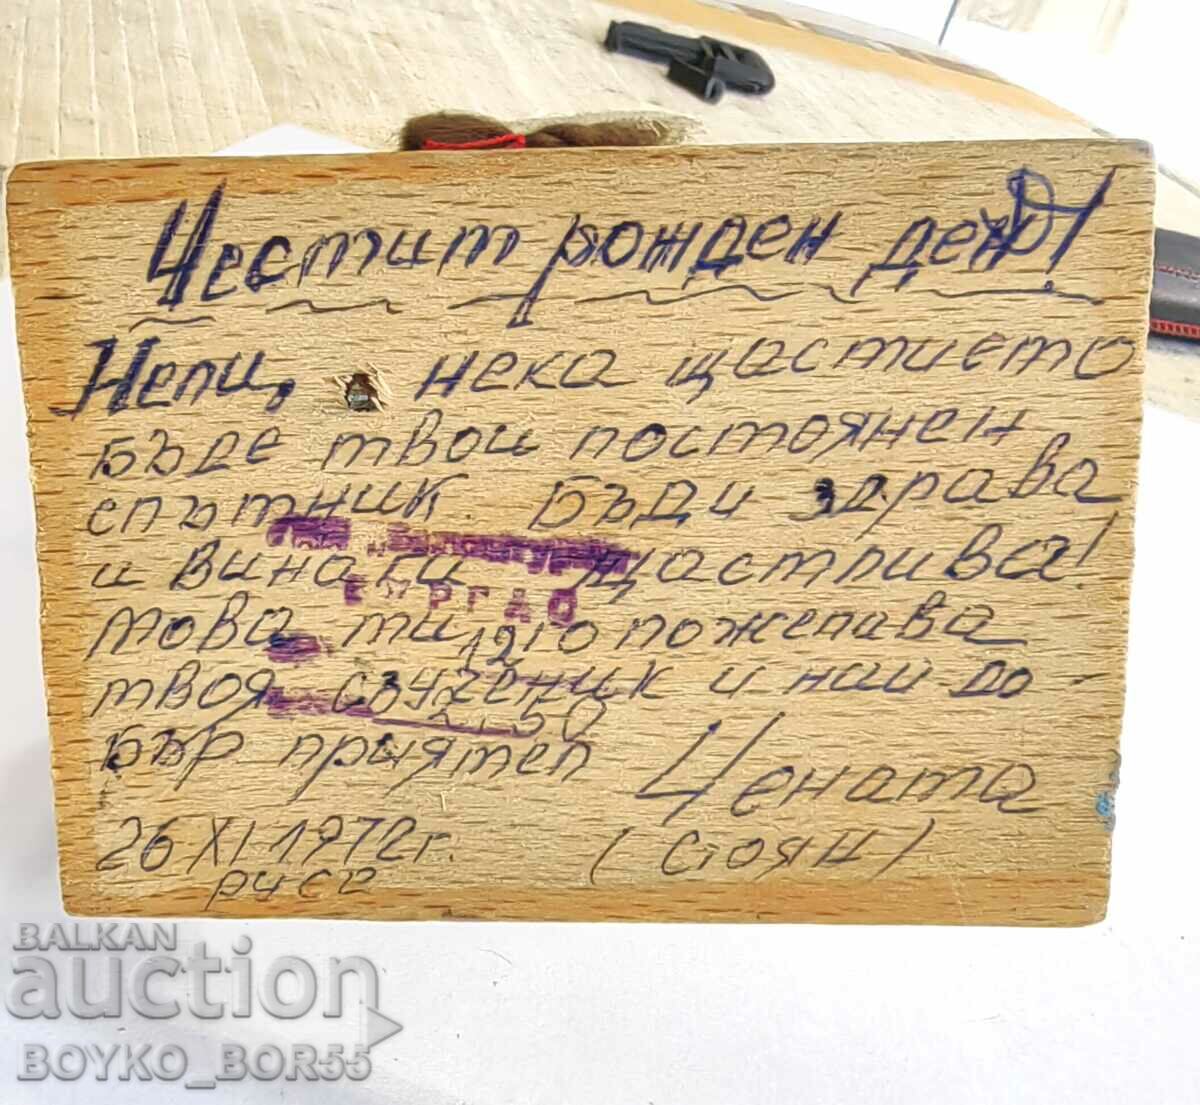 Честит рожден ден!
Нели, нека щастието
бъде твой постоянен
спътник. Бъди здрава
и винаги щастлива!
ЕЛПРГАО
Това ти го пожелава
12
твоя съученик и най до-
2.50
бър приятел Цената
26 XI 1972г. (Стоян)
Русе
BALKAN
auction
BOYKO_BOR55